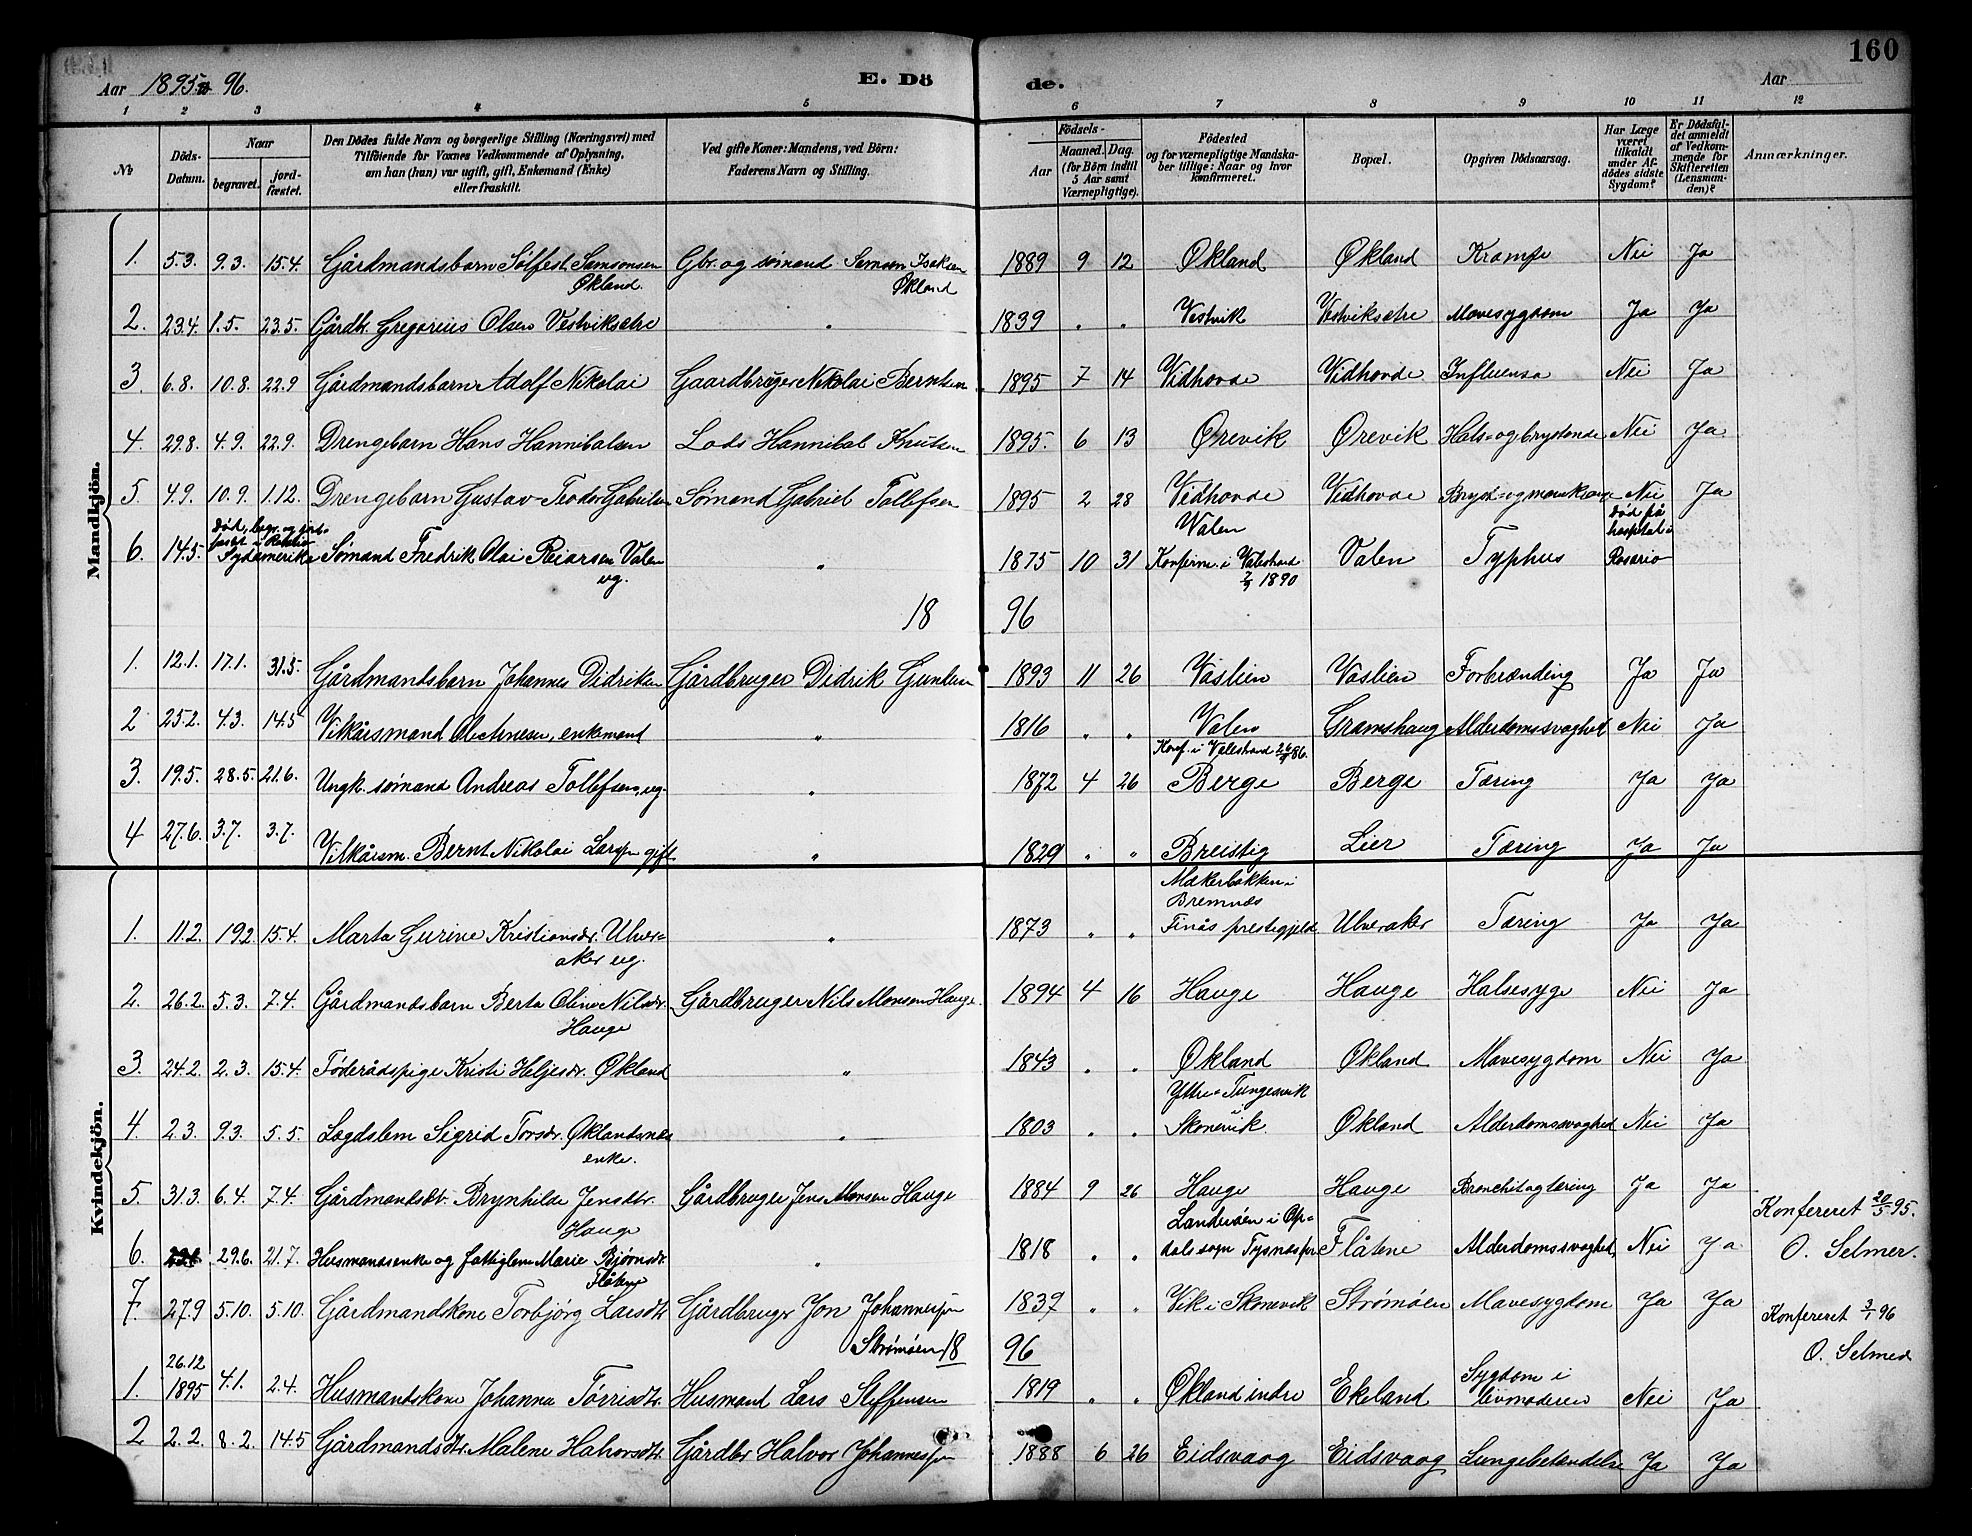 160
Aar 1895 96. E. Dö de. Aar
1 2 3 4 5 6 7 8 9 10 11 12
№
Döds-Datum.
Naar
begravet.
jordfæstet.
Den Dödes fulde Navn og borgerlige Stilling (Næringsvei) med
Tilföiende for Voxnes Vedkommende af Oplysning,
om han (hun) var ugift, gift, Enkemand (Enke)
eller fraskilt.
Ved gifte Koner: Mandens, ved Börn:
Faderens Navn og Stilling.
Födsels-
Aar
Maaned. Dag.
(for Börn indtil
5 Aar samt
Værnepligtige).
Födested
og for værnepligtige Mandskaber tillige: Naar og hvor
konfirmeret.
Bopæl.
Opgiven Dödsaarsag.
Har Læge
været
tilkaldt
under Afdödes sidste
Sygdom?
Er Dödsfaldet anmeldt
af Vedkommende for
Skifteretten
(Lensmanden)?
Anmærkninger.
Mandkjön.
1. 5.3. 9.3. 15.4. Gårdmandsbarn Sølfest Samsonsen Gbr. og sømand Samson Isaksen 1889 9 12 Økland Økland Krampe Nei Ja
Økland. Økland
2. 23.4. 1.5. 23.5. Gårdbr. Gregorius Olsen Vestviksætre " 1839 " " Vestvik Vestviksætre Mavesygdom Ja Ja
3. 6.8. 10.8. 22.9 Gårdmandsbarn Adolf Nikolai Gaardbruger Nikolai Berntsen 1895 7 14 Vidhovde Vidhovde Influensa Nei Ja
4. 29.8. 4.9. 22.9. Drengebarn Hans Hannibalsen Lods Hannibal Knutsen 1895. 6 13 Ørevik Ørevik Hals- og brystonde Nei Ja
5 4.9. 10.9. 1.12. Drengebarn Gustav Teodor Gabrielsen Sømand Gabriel Tollefsen 1895 2 28 Vidhovde Vidhovde Bryst- og Nei Ja
død, begr. og jordfæstet i Walen død på
6. 14.5. Sydamerika Sømand Fredrik Olai Reiarsen Valen " 1875 10 31 Konfirm. i Valestrand Valen Typhus hospital i Rosario
ug. 1890
18 96
1. 12.1. 17.1. 31.5. Gårdmandsbarn Johannes Didriksen Gårdbruger Didrik Guntsen 1893 11 26 Våslien Vaslien Forbrænding Ja Ja
2 25.2. 4.3. 14.5 Vilkårsmand Ole Arnesen, enkemand " 1816 " " Valen Gramshaug Alderdomssvaghed Nei Ja
Konf. i Valestrand 26/9 86.
3. 19.5. 28.5. 21.6. Ungk. sømand Andreas Tollefsen, ug. " 1872 4 26 Berge Berge Tæring Ja Ja
4 27.6. 3.7. 3.7. Vilkårsm. Bernt Nikolai Larssen gift " 1829 " " Breistig Lier Tæring Ja Ja
Kvindekjön.
Mækerbakken i
Bremnæs
1. 11.2. 19.2. 15.4. Marta Gurine Kristiansdr. Ulver= " 1873 " " Finås prestegjeld Ulveraker Tæring Ja Ja
aker ug.
2. 26.2. 5.3. 7.4. Gårdmandsbarn Berta Oline Nilsdr. Gårdbruger Nils Monsen Hauge. 1894 4 16 Hauge Hauge Halsesyge Nei Ja
Hauge
3. 24.2. 2.3. 15.4. Føderådspige Kristi Heljesdr. Økland " 1843 " " Økland Økland Mavesygdom Nei Ja
Ytre-Tungesvik
i
4. 2.3. 9.3. 5.5. Lægdslem Sigrid Torsdr. Øklandsnes " 1803 " " Skonevik Økland Alderdomssvaghed Nei Ja
enke.
5. 31.3. 6.4. 7.4. Gårdmandsdtr. Brynhilde Jensdtr. Gårdbruger Jens Monsen Hauge 1884 9 26 Hauge Hauge Bronchit og tæring Ja Ja
Hauge Landersøen i Op= Konfereret 20/5 95.
6. 29.6. 21.7. Husmandsenke og fattiglem Marie Bjørnsdr. " 1818 " " dals sogn Tysnes pr. Flåtene Alderdomssvaghed Nei Ja O. Selmer.
Flåtene
7. 27.9 5.10. 5.10. Gårdmandskone Torbjørg Larsdtr. Gårdbruger Jon Johannessen 1837 " " Vik i Skonevik Strømøen Mavesygdom Ja Ja Konfereret 3/1 96
Strømøen O. Selmer
18 96
26.12
1. 1895 4.1. 2.4. Husmandskone Johanna Tørrisdtr. Husmand Lars Steffensen 1819 " " Økland indre Ekeland Sygdom i livmoderen Nei Ja
2 2.2. 8.2. 14.5 Gårdmandsdtr. Malene Halvorsdtr. Gårdbr Halvor Johannessen 1888 6 26 Eidsvaag Eidsvaag Lungebetændelse Ja Ja